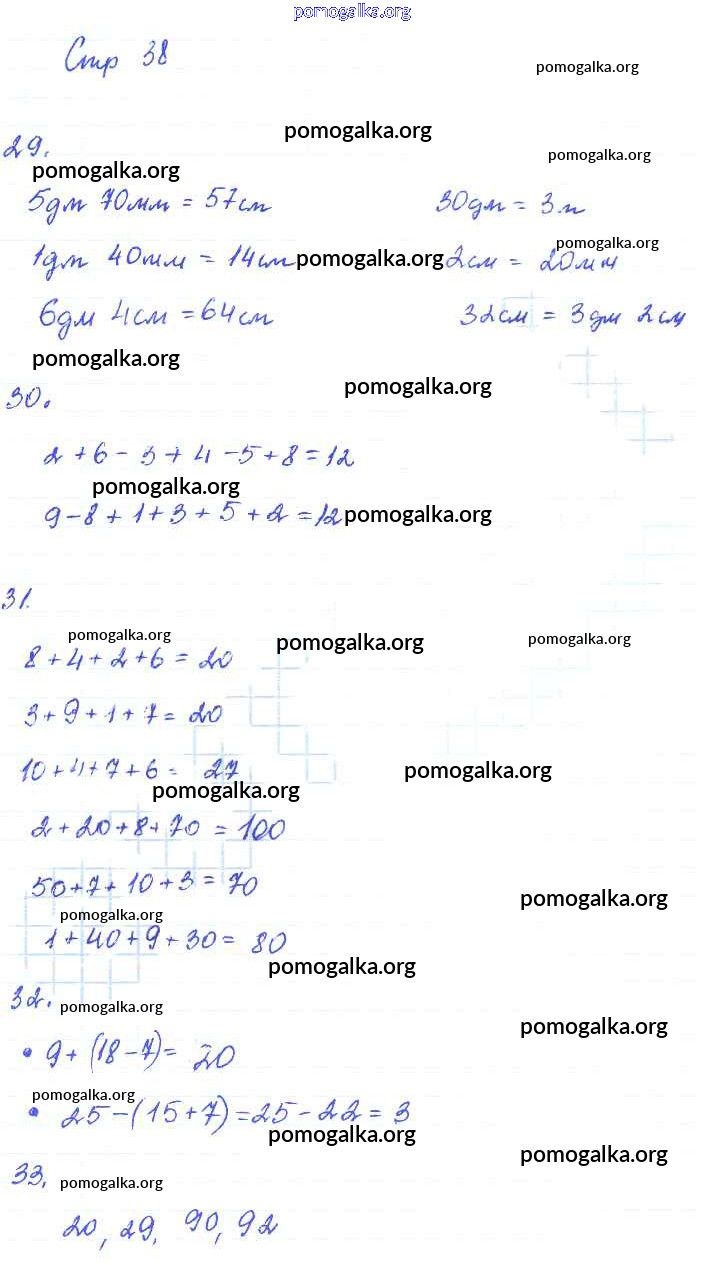 pomogalka.org
Стр 38
pomogalka.org
pomogalka.org
29.
pomogalka.org
pomogalka.org
5дм 70мм = 57см 30дм = 3м
pomogalka.org
1дм 40мм = 14см pomogalka.org 2см = 20мм
6дм 4см = 64см 32см = 3дм 2см
pomogalka.org
pomogalka.org
30.
2 + 6 - 3 + 4 - 5 + 8 = 12
pomogalka.org
9 - 8 + 1 + 3 + 5 + 2 = 12 pomogalka.org
31.
pomogalka.org pomogalka.org pomogalka.org
8 + 4 + 2 + 6 = 20
3 + 9 + 1 + 7 = 20
10 + 4 + 7 + 6 = 27
pomogalka.org
pomogalka.org
2 + 20 + 8 + 70 = 100
50 + 7 + 10 + 3 = 70
pomogalka.org
pomogalka.org
1 + 40 + 9 + 30 = 80
pomogalka.org
32. pomogalka.org
pomogalka.org
• 9 + (18 - 7) = 20
pomogalka.org
• 25 - (15 + 7) = 25 - 22 = 3
pomogalka.org
pomogalka.org
33. pomogalka.org
20, 29, 90, 92